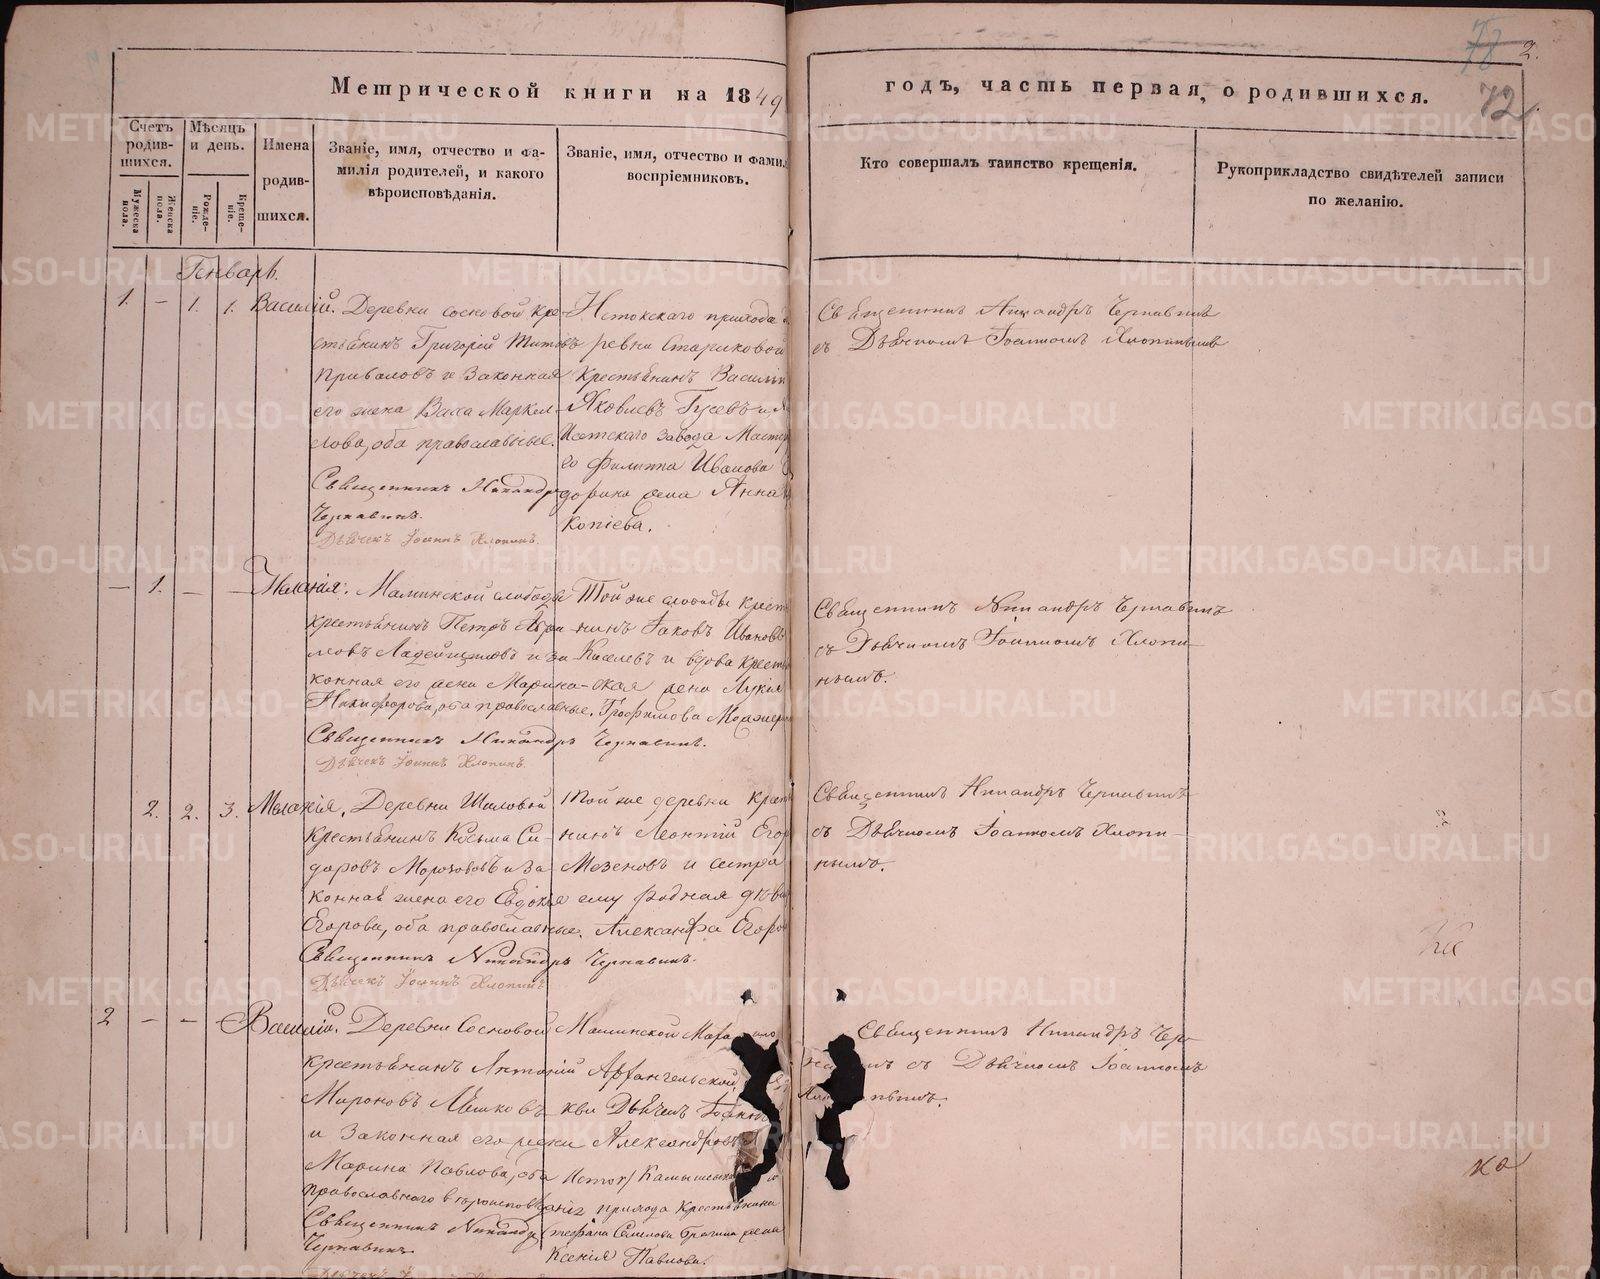 78 2.
72
Метрической книги на 1849
годъ, часть первая, о родившихся.
Счетъ родив-шихся.
Мѣсяцъ и день.
Имена родив-шихся.
Званіе, имя, отчество и фа-
милія родителей, и какого
вѣроисповѣданія.
Званіе, имя, отчество и фами
воспріемниковъ.
Кто совершалъ таинство крещенія.
Рукоприкладство свидѣтелей записи
по желанію.
Мужеска пола.
Женска пола.
Рожде-ніе.
Креще-ніе.
Генварь.
1. – 1. 1. Василій.
Деревни сосновой кре-
стьянинъ Григорій Титовъ
Приваловъ и Законная
его жена Васса Маркел-
лова, оба православные.
Священникъ Никандръ
Чернавинъ.
Дьячекъ Іоаннъ Хлопинъ.
Истокскаго прихода
ревни Стариковой
Крестьянинъ Василій
Яковлевъ Гусевъ и
Исетскаго завода Мастер
го Филиппа Иванова
дорина жена Анна
копіева.
Священникъ Никандръ Чернавинъ
съ Дьячкомъ Іоанномъ Хлопинымъ
– 1. – – Меланія.
Маминской слободы
крестьянинъ Петръ Абра-
мовъ Ладейщиковъ и за-
конная его жена Марина
Никифорова, оба православные.
Священникъ Никандръ Чернавинъ.
Дьячекъ Іоаннъ Хлопинъ.
Той же слободы крест
нинъ Іаковъ Ивановъ
Киселевъ и вдова крестьян
ская жена Лукія
Трофимова
Священникъ Никандръ Чернавинъ
съ Дьячкомъ Іоанномъ Хлопи-
нымъ.
2. 2. 3. Меланія.
Деревни Шиловой
крестьянинъ Косьма Си-
доровъ Морозовъ и за
конная жена его Евдокія
Егорова, оба православные.
Священникъ Никандръ Чернавинъ.
Дьячекъ Іоаннъ Хлопинъ
Той же деревни крест
нинъ Леонтій Егор
Мезеновъ и сестра
ему родная дѣви
Александра Егоро
Священникъ Никандръ Чернавинъ
съ Дьячкомъ Іоанномъ Хлопи-
нымъ.
2 – – – Василій.
Деревни Сосновой
крестьянинъ Антоній
Мироновъ Мѣшковъ
и Законная его жена
Марина Павлова, оба
православнаго вѣроисповѣданія
Священникъ Никандръ
Чернавинъ
Маминской
Архангельской
кви Дьячекъ Іоаннъ
Александровъ
Исток
прихода Крестьянина
Стефана жена
Ксенія Павлова.
Священникъ Никандръ Чер-
съ Дьячкомъ Іоанномъ
METRIKI.GASO-URAL.RU